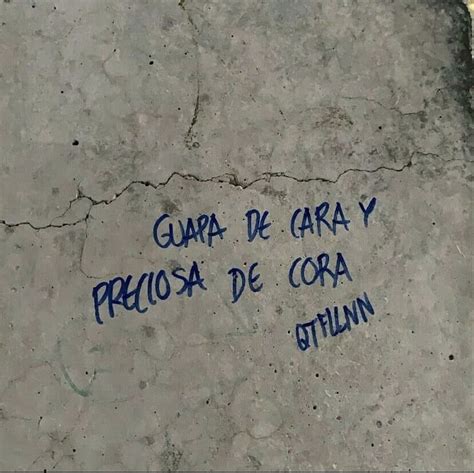 GUAPA DE CARA Y
PRECIOSA DE CORA
QTFLLNN